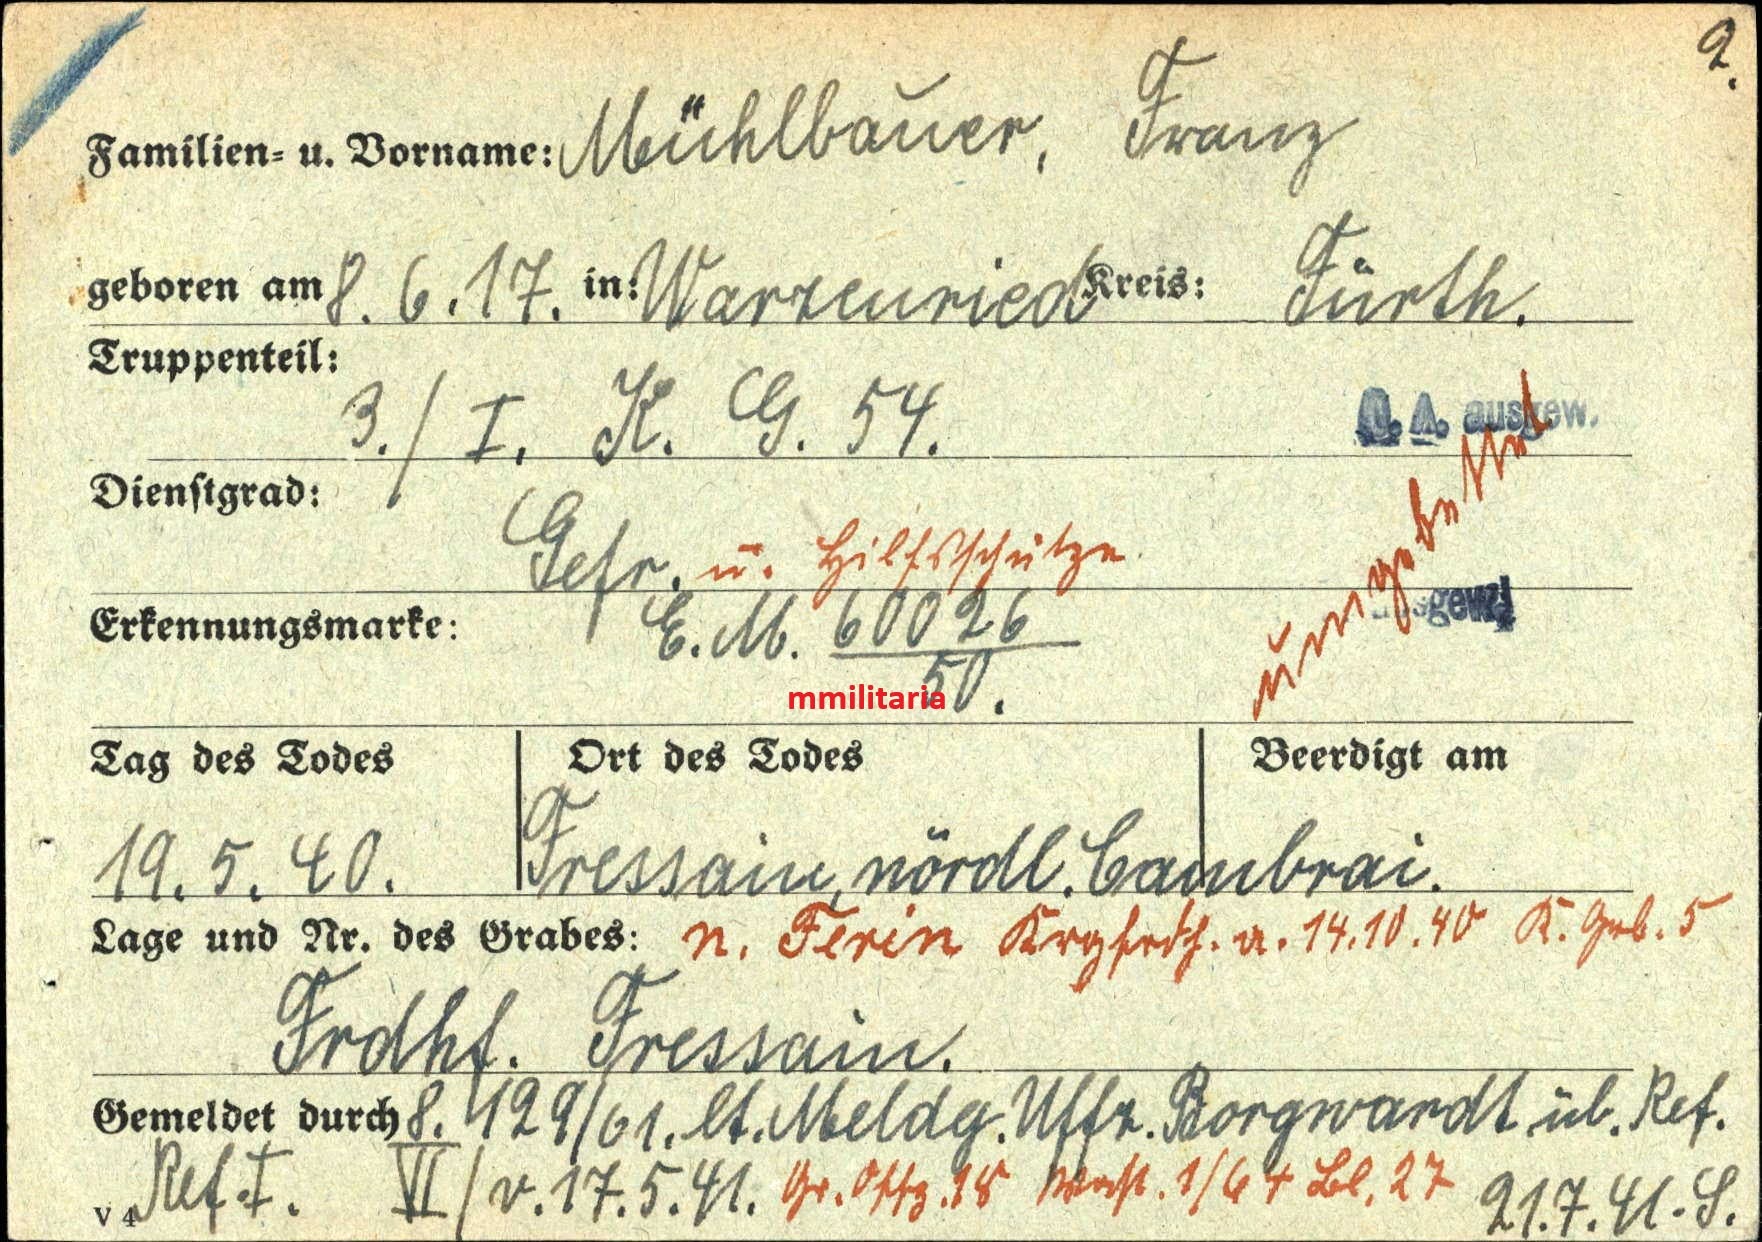 2.
Familien- u. Vorname: Mühlbauer, Franz
geboren am 8. 6. 17. in: Warzenried Kreis: Fürth.
Truppenteil:
3./ I. K. G. 54. D. A. ausgew.
Dienstgrad:
Gefr. u. Hilfsschütze
umgebettet
Erkennungsmarke: E. M. 60026
50.
mmilitaria
Tag des Todes Ort des Todes Beerdigt am
19. 5. 40. Fressain, nördl. Cambrai.
Lage und Nr. des Grabes: n. Ferin Krgfrdh. a. 14.10.40 K. Grb. 5
Frdhf. Fressain.
Gemeldet durch 8. 129/61. lt. Meldg. Uffz. Borgwardt üb. Ref.
Ref. I. VI/ v. 17. 5. 41. Gr. Offz. 18 1/64 Bl. 27 21. 7. 41. S.
V 4